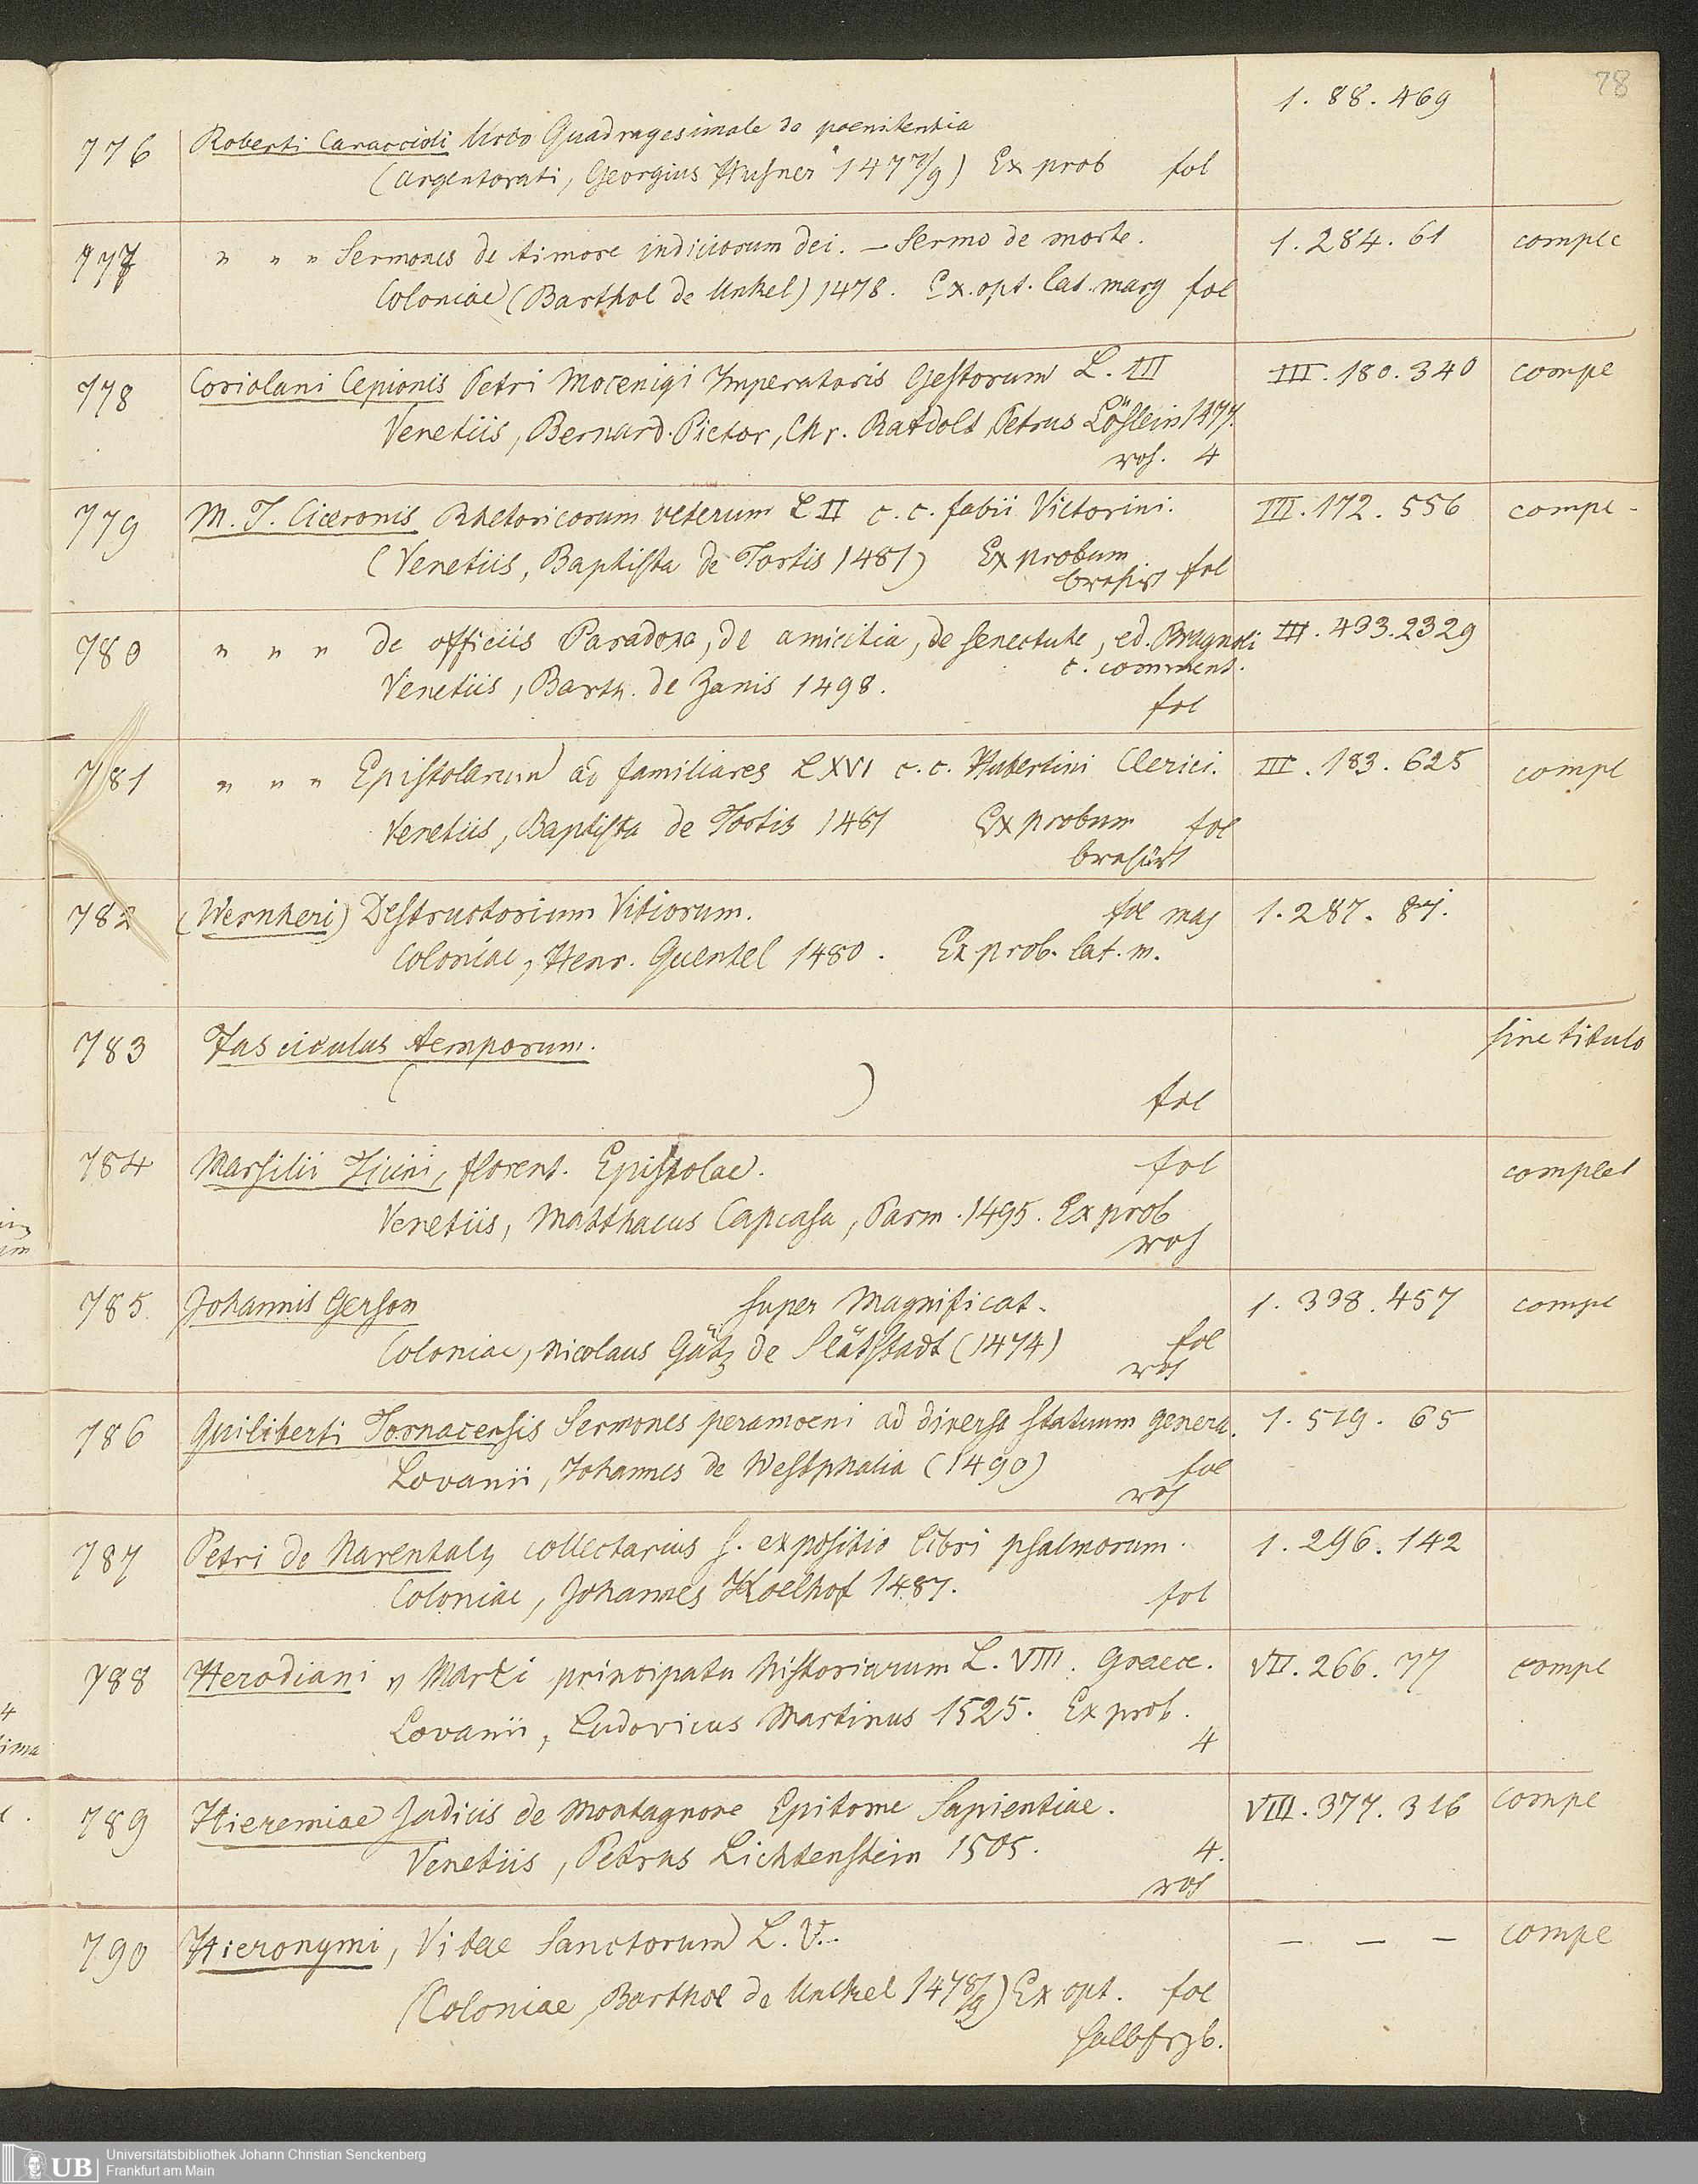 78
1. 88. 469
776 Roberti Caraccioli Quadragesimale de poenitentia
(argentorati, Georgius Husner 147 7/9) Ex prob fol
777 " " " Sermones de timore indiciorum dei. – Sermo de morte. 1. 284. 61 comple
Coloniae (Barthol de Unkel) 1478. Ex. opt. lat. marg fol
778 Coriolani Cepionis Petri Mocenigi Imperatoris Gestorum L. III III. 180. 340 compl
Venetiis, Bernard. Pictor, Chr. Ratdolt Petrus Löslein 1477.
roh. 4
779 M. T. Ciceronis Rhetoricorum veterum L II c. c. fabii Victorini. III. 172. 556 compl.
(Venetiis, Baptista de Tortis 1481) Ex probum
brosirt fol
780 " " " de officiis Paradoxa, de amicitia, de senectute, ed. Brugnoli III. 493. 2329
c. comment.
Venetiis, Barth. de Zanis 1498.
fol
781 " " " Epistolarum ad familiares L XVI c. c. Hubertini Clerici. III. 183. 625 compl
Venetiis, Baptista de Tortis 1481 Ex probum fol
brosürt
782 (Wernheri) Destructorium Vitiorum. fol maj 1. 287. 87.
Coloniae, Henr. Quentel 1480. Ex prob. lat. m.
783 Fasciculus temporum. sine titulo
( ) fol
784 Marsilii Ficini, florent. Epistolae. fol complet
Venetiis, Matthaeus Capcasa, Parm. 1495. Ex prob
roh
785. Johannis Gerson super Magnificat. 1. 398. 457 compl
Coloniae, Nicolaus Götz de Slätstadt (1474) fol
roh
786 Guiliberti Tornacensis Sermones peramoeni ad diversa statuum genera. 1. 519. 65
Lovanii, Johannes de Westphalia (1490) fol
roh
787 Petri de Harentals collectarius s. expositio libri psalmorum. 1. 296. 142
Coloniae, Johannes Koelhof 1487. fol
788 Herodiani Marci principatu historiarum L. VIII. Graece. VII. 266. 77 compl
Lovanii, Ludovicus Martinus 1525. Ex prob.
4
789 Hieremiae Judicis de Montagnone Epitome Sapientiae. VIII. 377. 316 compl
Venetiis, Petrus Lichtenstein 1505. 4.
roh
790 Hieronymi, Vitae Sanctorum L. V. – – – compl
(Coloniae, Barthol de Unckel 147 8/9) Ex opt. fol
halbfrzb.
UB
Universitätsbibliothek Johann Christian Senckenberg
Frankfurt am Main